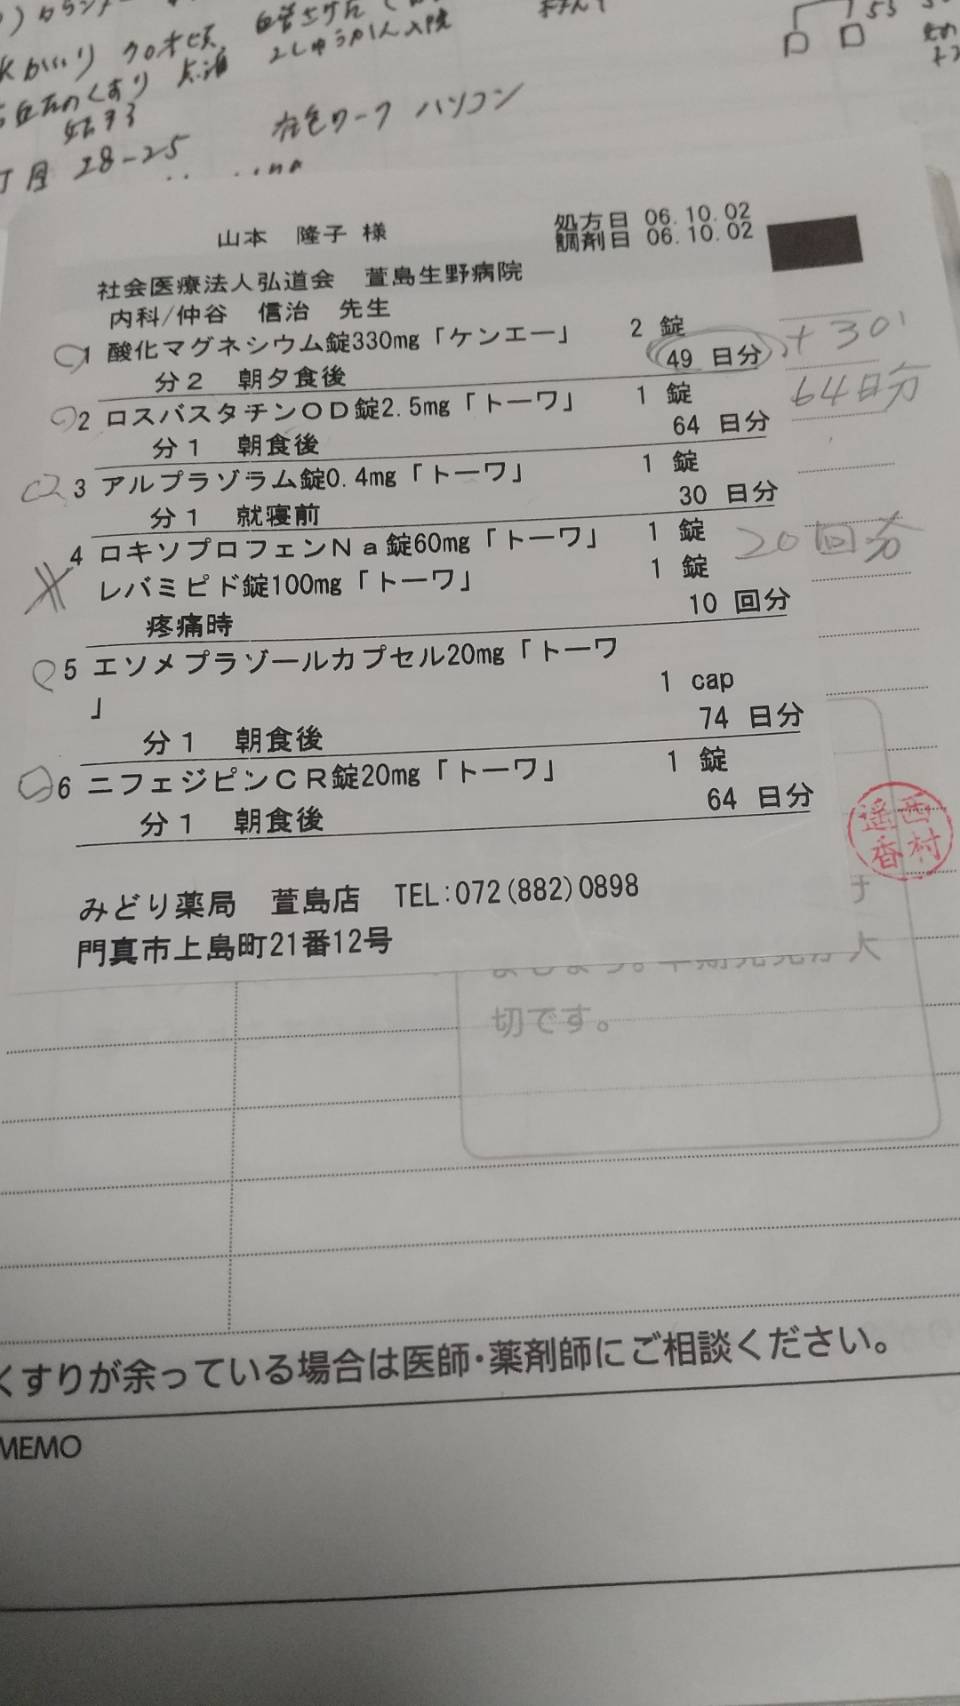 クロオピス
2しゅうかん入院
のくすり 点滴
28-25 在宅ワーク パソコン
山本 隆子 様
処方日 06.10.02
調剤日 06.10.02
社会医療法人弘道会 萱島生野病院
内科/仲谷 信治 先生
1 酸化マグネシウム錠330mg「ケンエー」 2 錠
分2 朝夕食後 49 日分 +30
64日分
2 ロスバスタチンOD錠2.5mg「トーワ」 1 錠
分1 朝食後 64 日分
3 アルプラゾラム錠0.4mg「トーワ」 1 錠
分1 就寝前 30 日分
4 ロキソプロフェンNa錠60mg「トーワ」 1 錠 20回分
レバミピド錠100mg「トーワ」 1 錠
疼痛時 10 回分
5 エソメプラゾールカプセル20mg「トーワ
」 1 cap
分1 朝食後 74 日分
6 ニフェジピンCR錠20mg「トーワ」 1 錠
分1 朝食後 64 日分
西村
遥香
みどり薬局 萱島店 TEL:072(882)0898
門真市上島町21番12号
切です。
くすりが余っている場合は医師・薬剤師にご相談ください。
MEMO